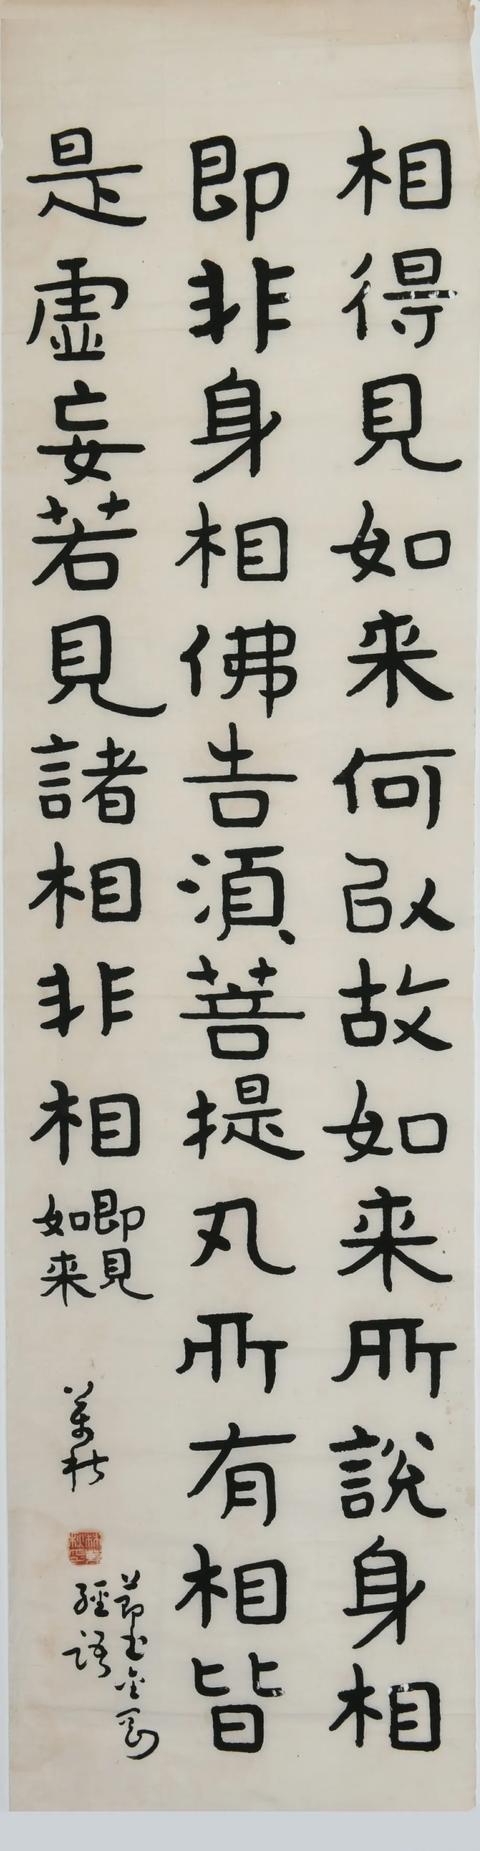 相得見如来何以故如来所説身相
即非身相佛告須菩提凡所有相皆
是虚妄若見諸相非相即見如来
節書金剛經語